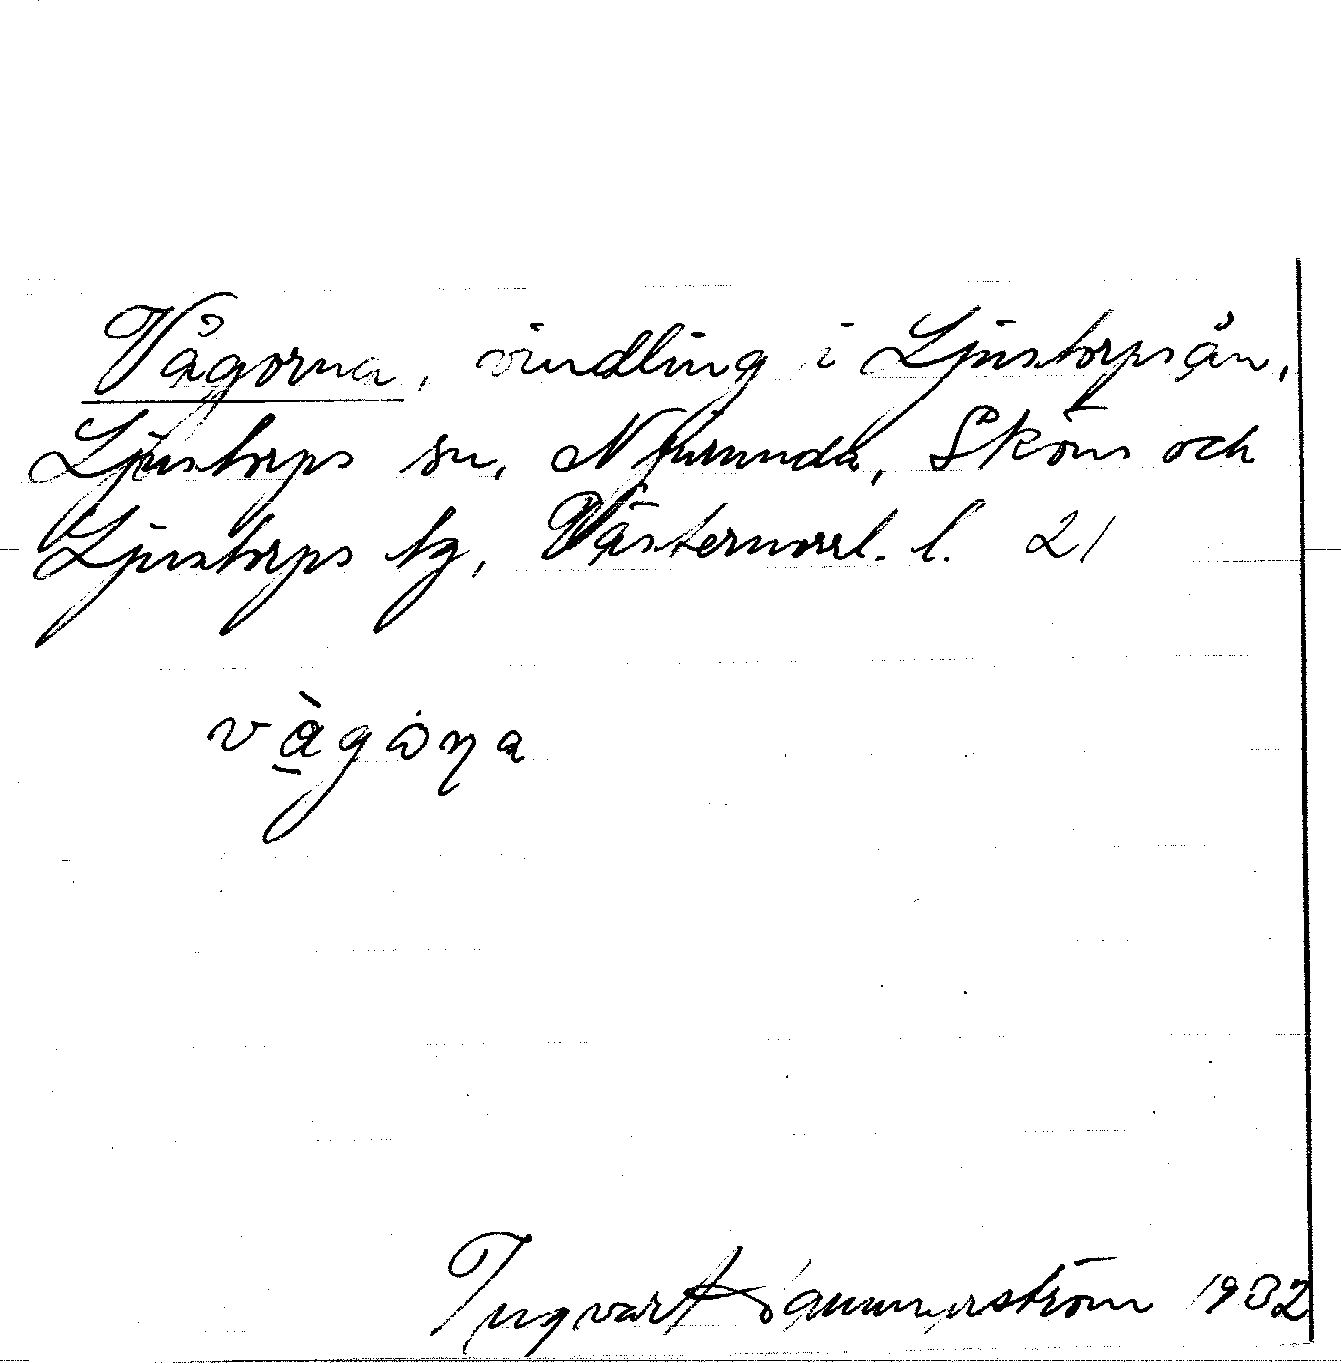 Vågorna, vindling i Ljustorpsån,
Ljustorps sn, Njurunda, Sköns och
Ljustorps tg, Västernorrl. l. 21
vågoṇa
Ingvar 1932